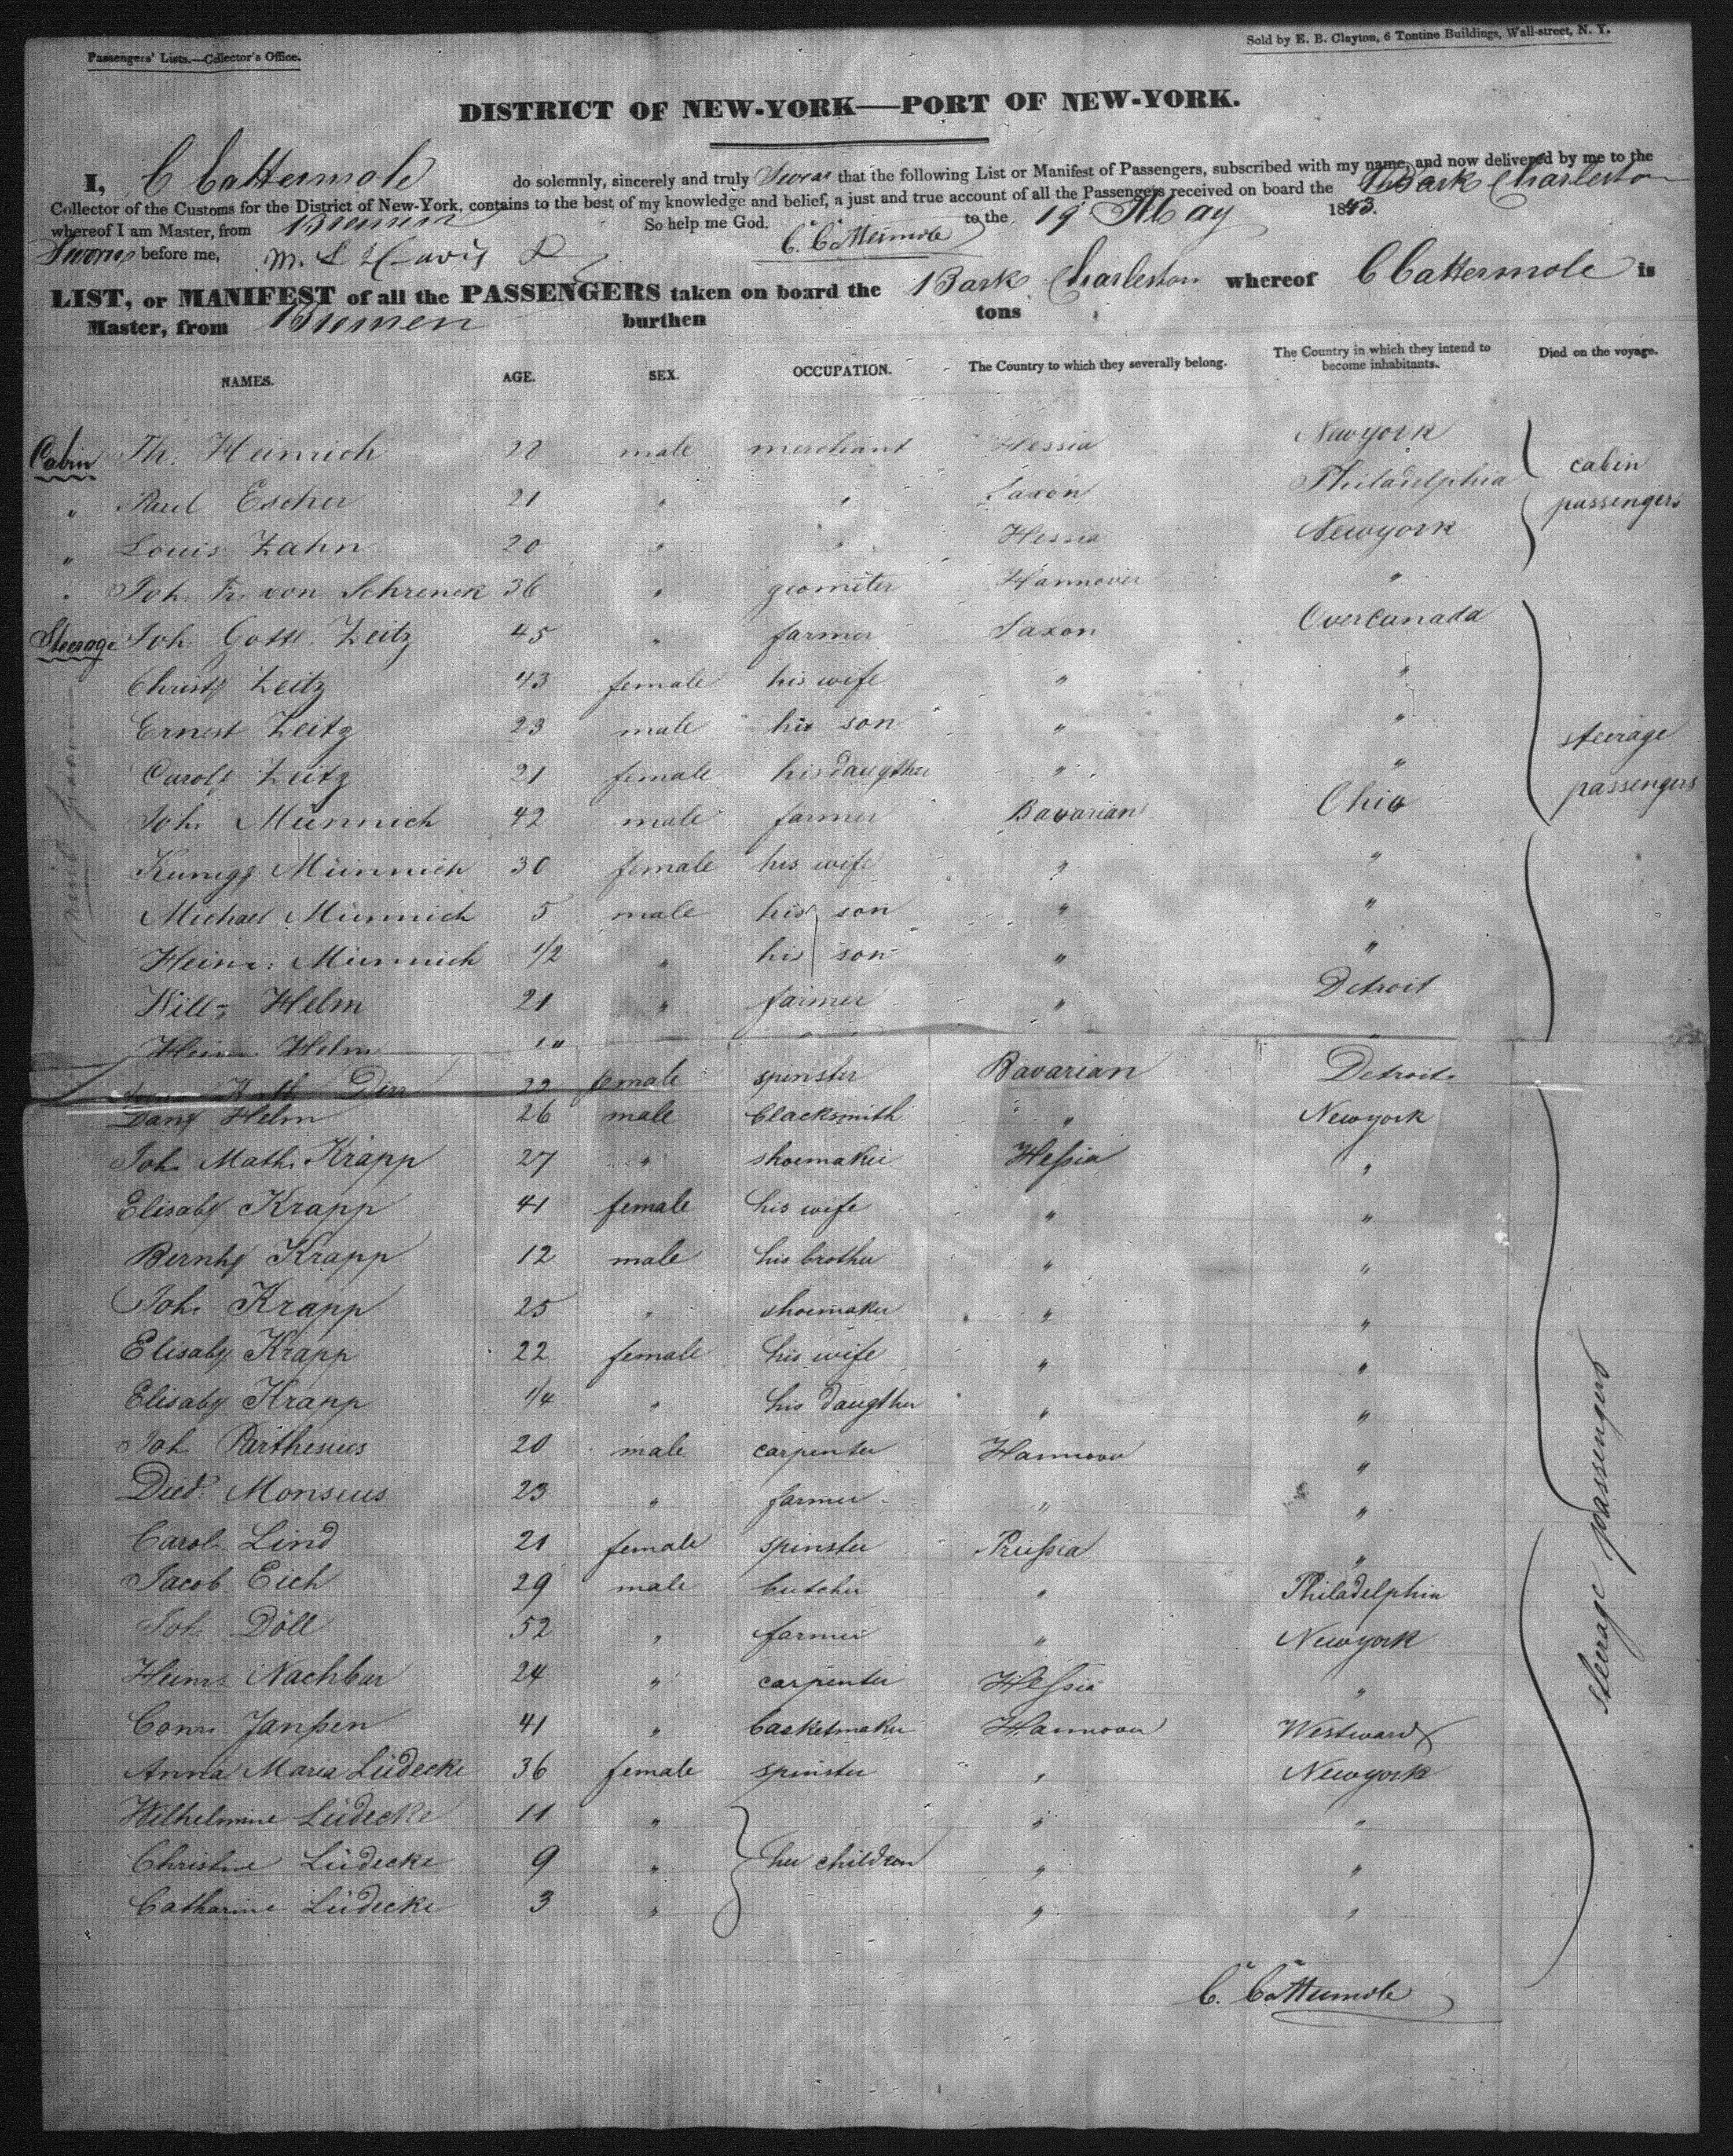 Passengers' Lists.—Collector's Office.
Sold by E. B. Clayton, 6 Tontine Buildings, Wall-street, N. Y.
DISTRICT OF NEW-YORK—PORT OF NEW-YORK.
I, C Cattermole do solemnly, sincerely and truly Swear that the following List or Manifest of Passengers, subscribed with my name, and now delivered by me to the
Collector of the Customs for the District of New-York, contains to the best of my knowledge and belief, a just and true account of all the Passengers received on board the Bark Charleston
whereof I am Master, from Bremen to the 19 May 1843.
So help me God.
Sworn before me, C. Cattermole
LIST, or MANIFEST of all the PASSENGERS taken on board the Bark Charleston whereof C Cattermole is
Master, from Bremen burthen tons
NAMES. AGE. SEX. OCCUPATION. The Country to which they severally belong. The Country in which they intend to become inhabitants. Died on the voyage.
Cabin Th. Heinrich male merchant Hessia Newyork
" Paul Escher 21 " " Saxon Philadelphia
" Louis Zahn 20 " " Hessia Newyork
cabin
passengers
" Joh. Fr. von Schrenck 36 " geometer Hannover "
Steerage Joh. Gottl. Zeitz 45 " farmer Saxon Overcanada
Christ Zeitz 43 female his wife " "
Ernest Zeitz 23 male his son " "
Carol Zeitz 21 female his daugther " "
steerage
passengers
Joh. Münnich 42 male farmer Bavarian Ohio
Kunigg Münnich 30 female his wife " "
Michael Münnich 5 male his son " "
Heinr: Münnich 1/2 " his son " "
Will Helm 21 " farmer " Detroit
Heinr. Helm
Dirr 22 female spinster Bavarian Detroit
Dan Helm 26 male blacksmith " Newyork
Joh. Math. Krapp 27 " shoemaker Hessia "
Elisab Krapp 41 female his wife " "
Bernh Krapp 12 male his brother " "
Joh. Krapp 25 " shoemaker " "
Elisab Krapp 22 female his wife " "
Elisab Krapp 1/4 " his daugther " "
Joh. Parthesius 20 male carpenter Hannover "
Died. Monsees 23 " farmer " "
Carol. Lind 21 female spinster Prussia "
Jacob Eich 29 male butcher " Philadelphia
Joh. Döll 52 " farmer " Newyork
Heinr. Nachbar 24 " carpenter Hessia "
Conr. Janssen 41 " basketmaker Hannover Westward
Anna Maria Lüdecke 36 female spinster " Newyork
Wilhelmine Lüdecke 11 " " "
Christine Lüdecke 9 " her children " "
Catharine Lüdecke 3 " " "
steerage passengers
C. Cattermole